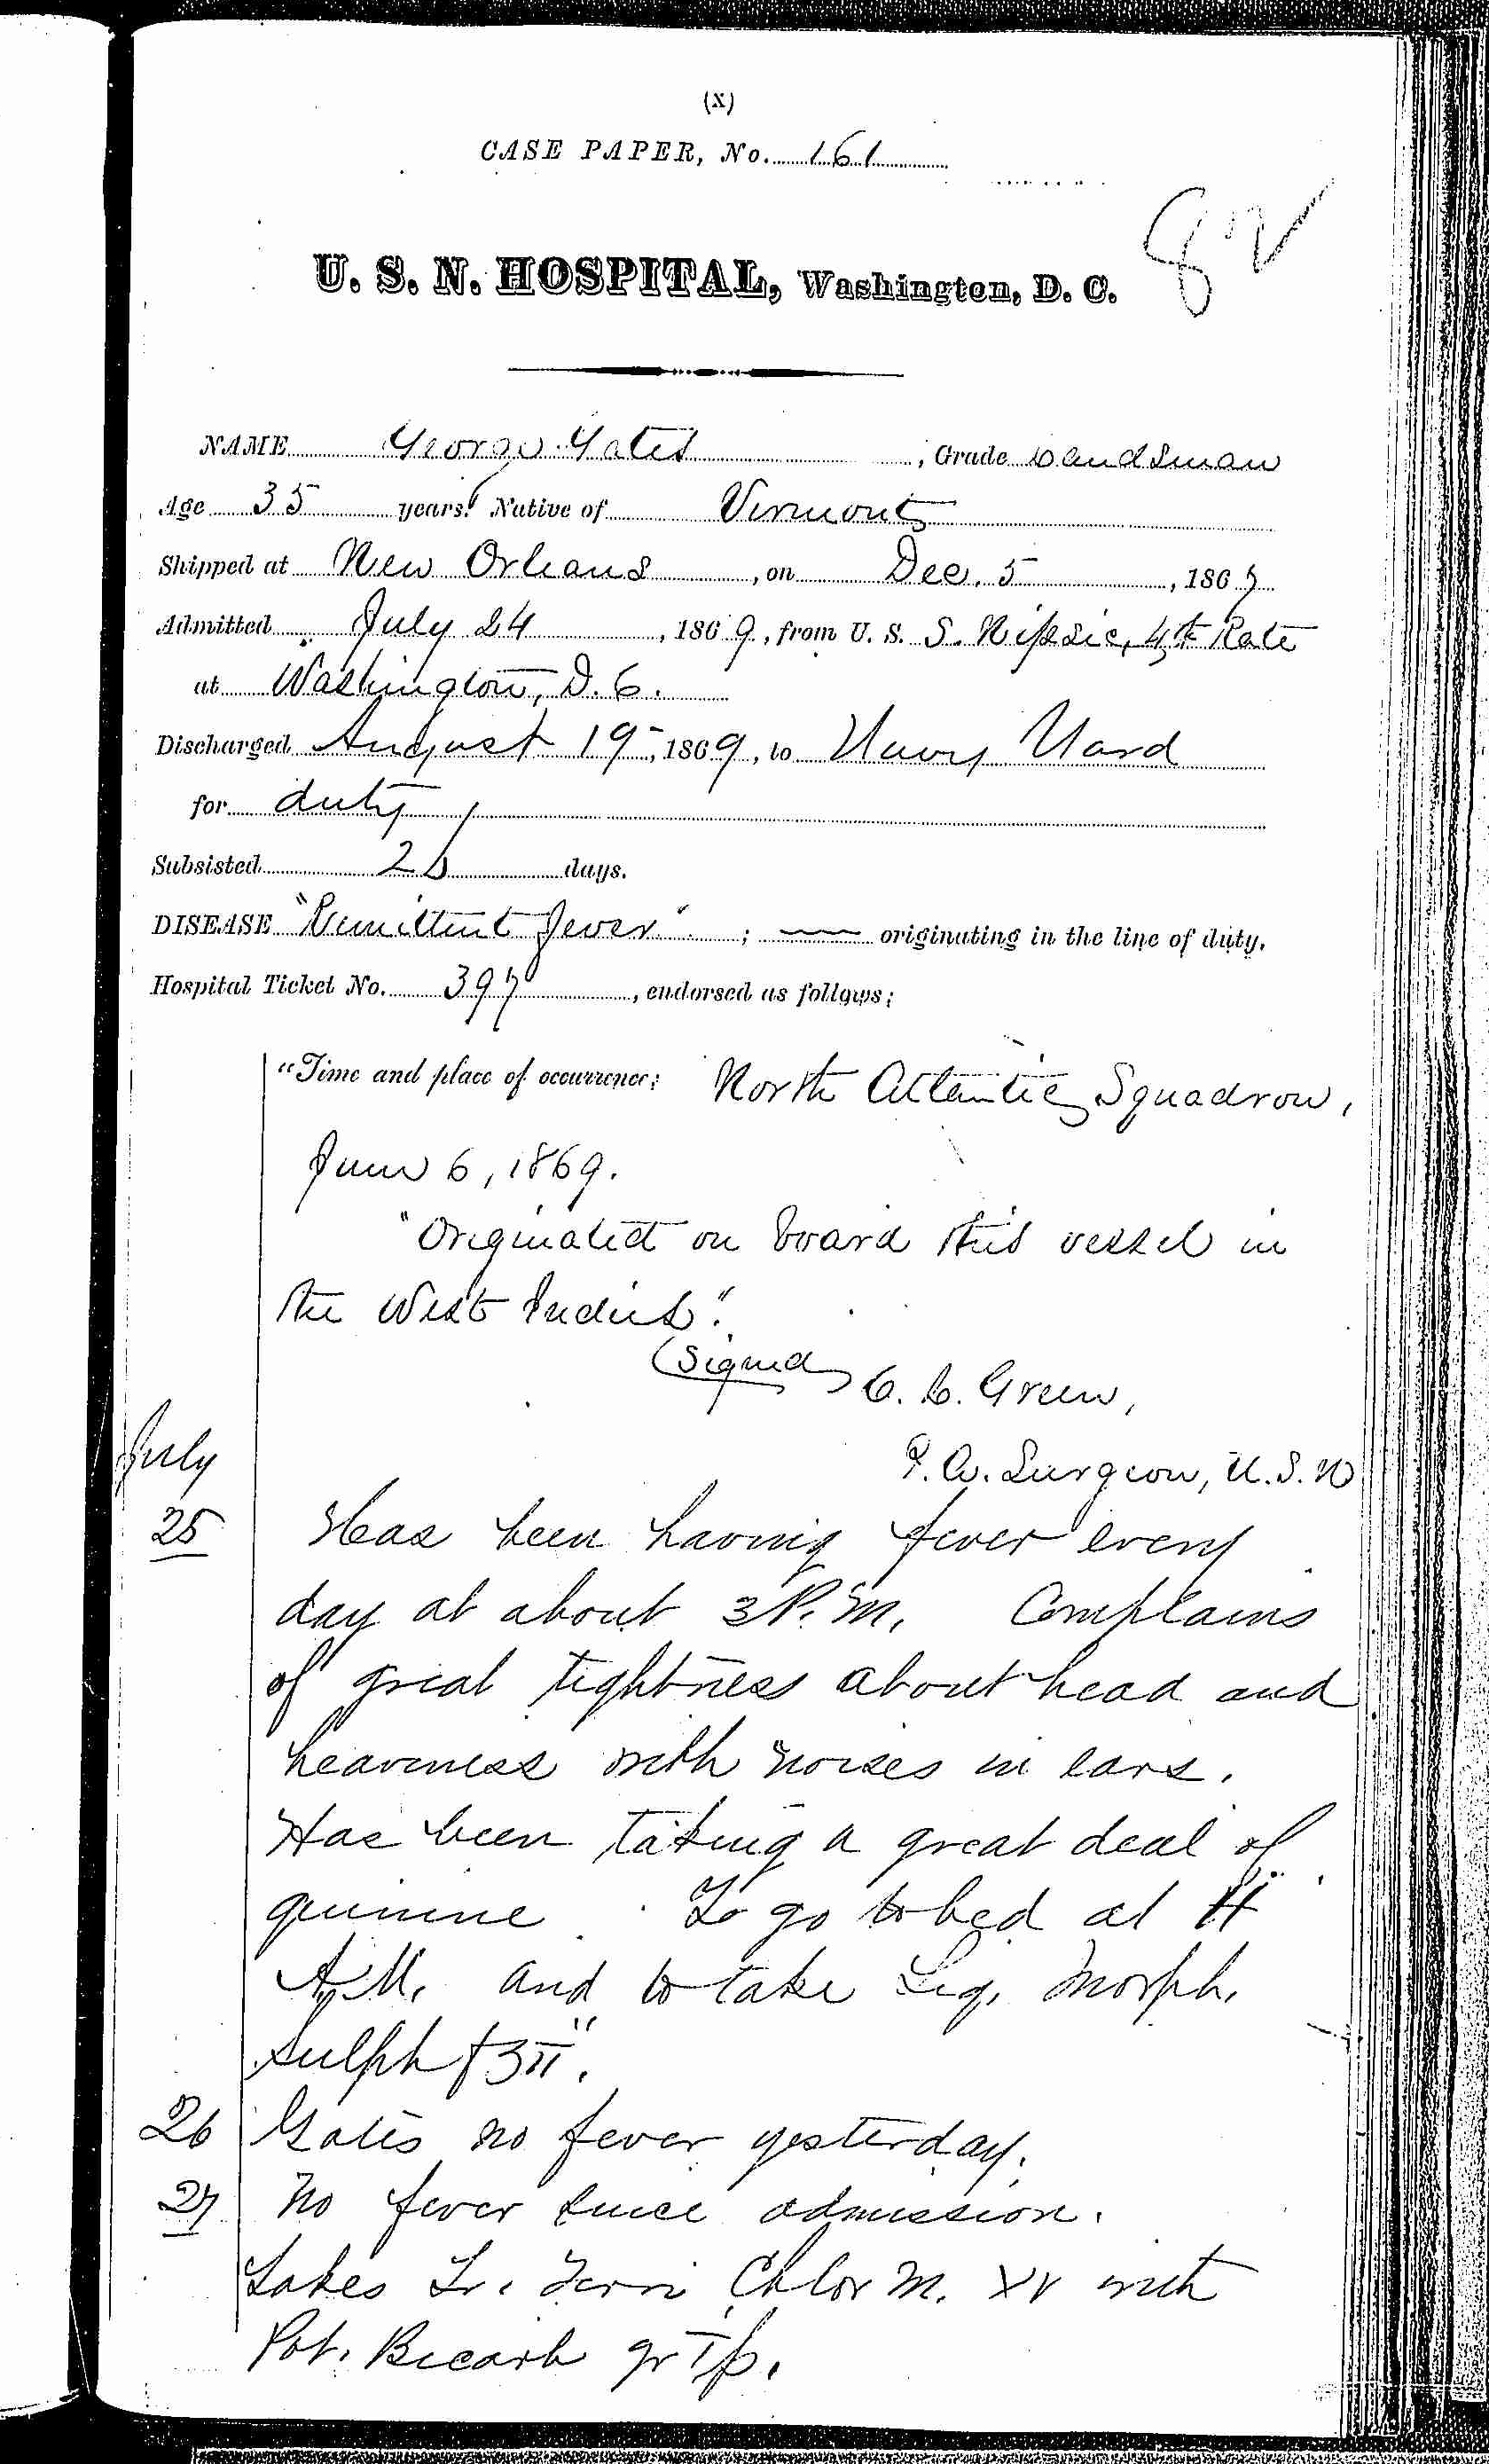 (X)
CASE PAPER, No. 161
82
U. S. N. HOSPITAL, Washington, D. C.
NAME George Yates, Grade Landsman
Age 35 years. Native of Vermont
Shipped at New Orleans, on Dec. 5, 1867
Admitted July 24, 1869, from U. S. S. Nipsic, 4th Rate
at Washington, D. C.
Discharged August 19, 1869, to Navy Yard
for duty
Subsisted 26 days.
DISEASE "Remittent fever"; — originating in the line of duty.
Hospital Ticket No. 397, endorsed as follows:
"Time and place of occurrence: North Atlantic Squadron,
June 6, 1869.
"Originated on board this vessel in
the West Indies".
(Signed) C. L. Green,
P. A. Surgeon, U.S.N
July
25 Has been having fever every
day at about 3 P.M. Complains
of great tightness about head and
heaviness with noises in ears.
Has been taking a great deal of
quinine. To go to bed at 11
A.M. and to take Liq. Morph.
Sulph f℥ii.
26 Yates no fever yesterday.
27 No fever since admission.
Takes Tr. Ferri Chlor M. XV with
Pot. Bicarb gr